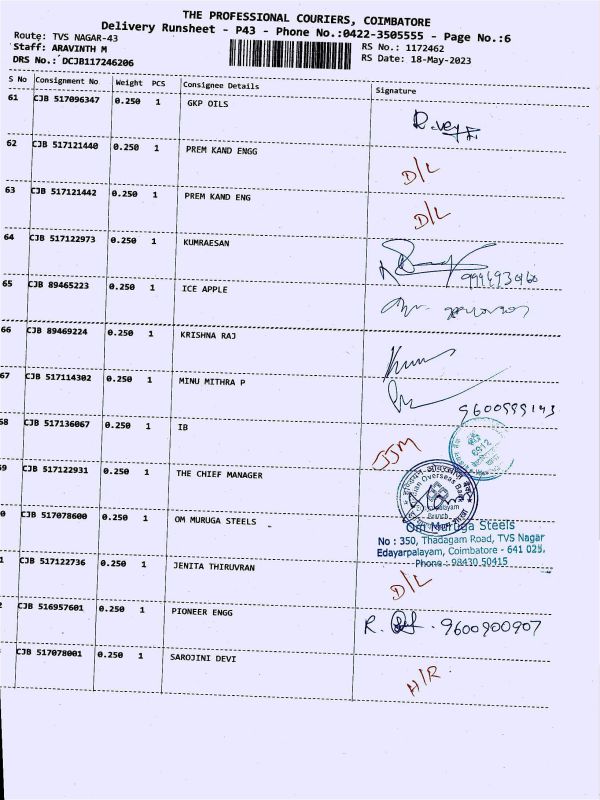 THE PROFESSIONAL COURIERS, COIMBATORE
Delivery Runsheet - P43 - Phone No.:0422-3505555 - Page No.:6
Route: TVS NAGAR-43
Staff: ARAVINTH M
RS No.: 1172462
DRS No.: DCJB117246206
RS Date: 18-May-2023
S No Consignment No. Weight PCS Consignee Details Signature
61 CJB 517096347 0.250 1 GKP OILS
62 CJB 517121440 0.250 1 PREM KAND ENGG D/L
63 CJB 517121442 0.250 1 PREM KAND ENG D/L
64 CJB 517122973 0.250 1 KUMRAESAN
65 CJB 89465223 0.250 1 ICE APPLE
66 CJB 89469224 0.250 1 KRISHNA RAJ
67 CJB 517114302 0.250 1 MINU MITHRA P 9600599143
68 CJB 517136067 0.250 1 IB JJM
2012
69 CJB 517122931 0.250 1 THE CHIEF MANAGER
Indian Overseas Bank
0 CJB 517078600 0.250 1 OM MURUGA STEELS
Om Muruga Steels
No : 350, Thadagam Road, TVS Nagar
Edayarpalayam, Coimbatore - 641 025.
Phone : 98430 50415
1 CJB 517122736 0.250 1 JENITA THIRUVRAN D/L
2 CJB 516957601 0.250 1 PIONEER ENGG R. 9600900907
CJB 517078001 0.250 1 SAROJINI DEVI H/R.